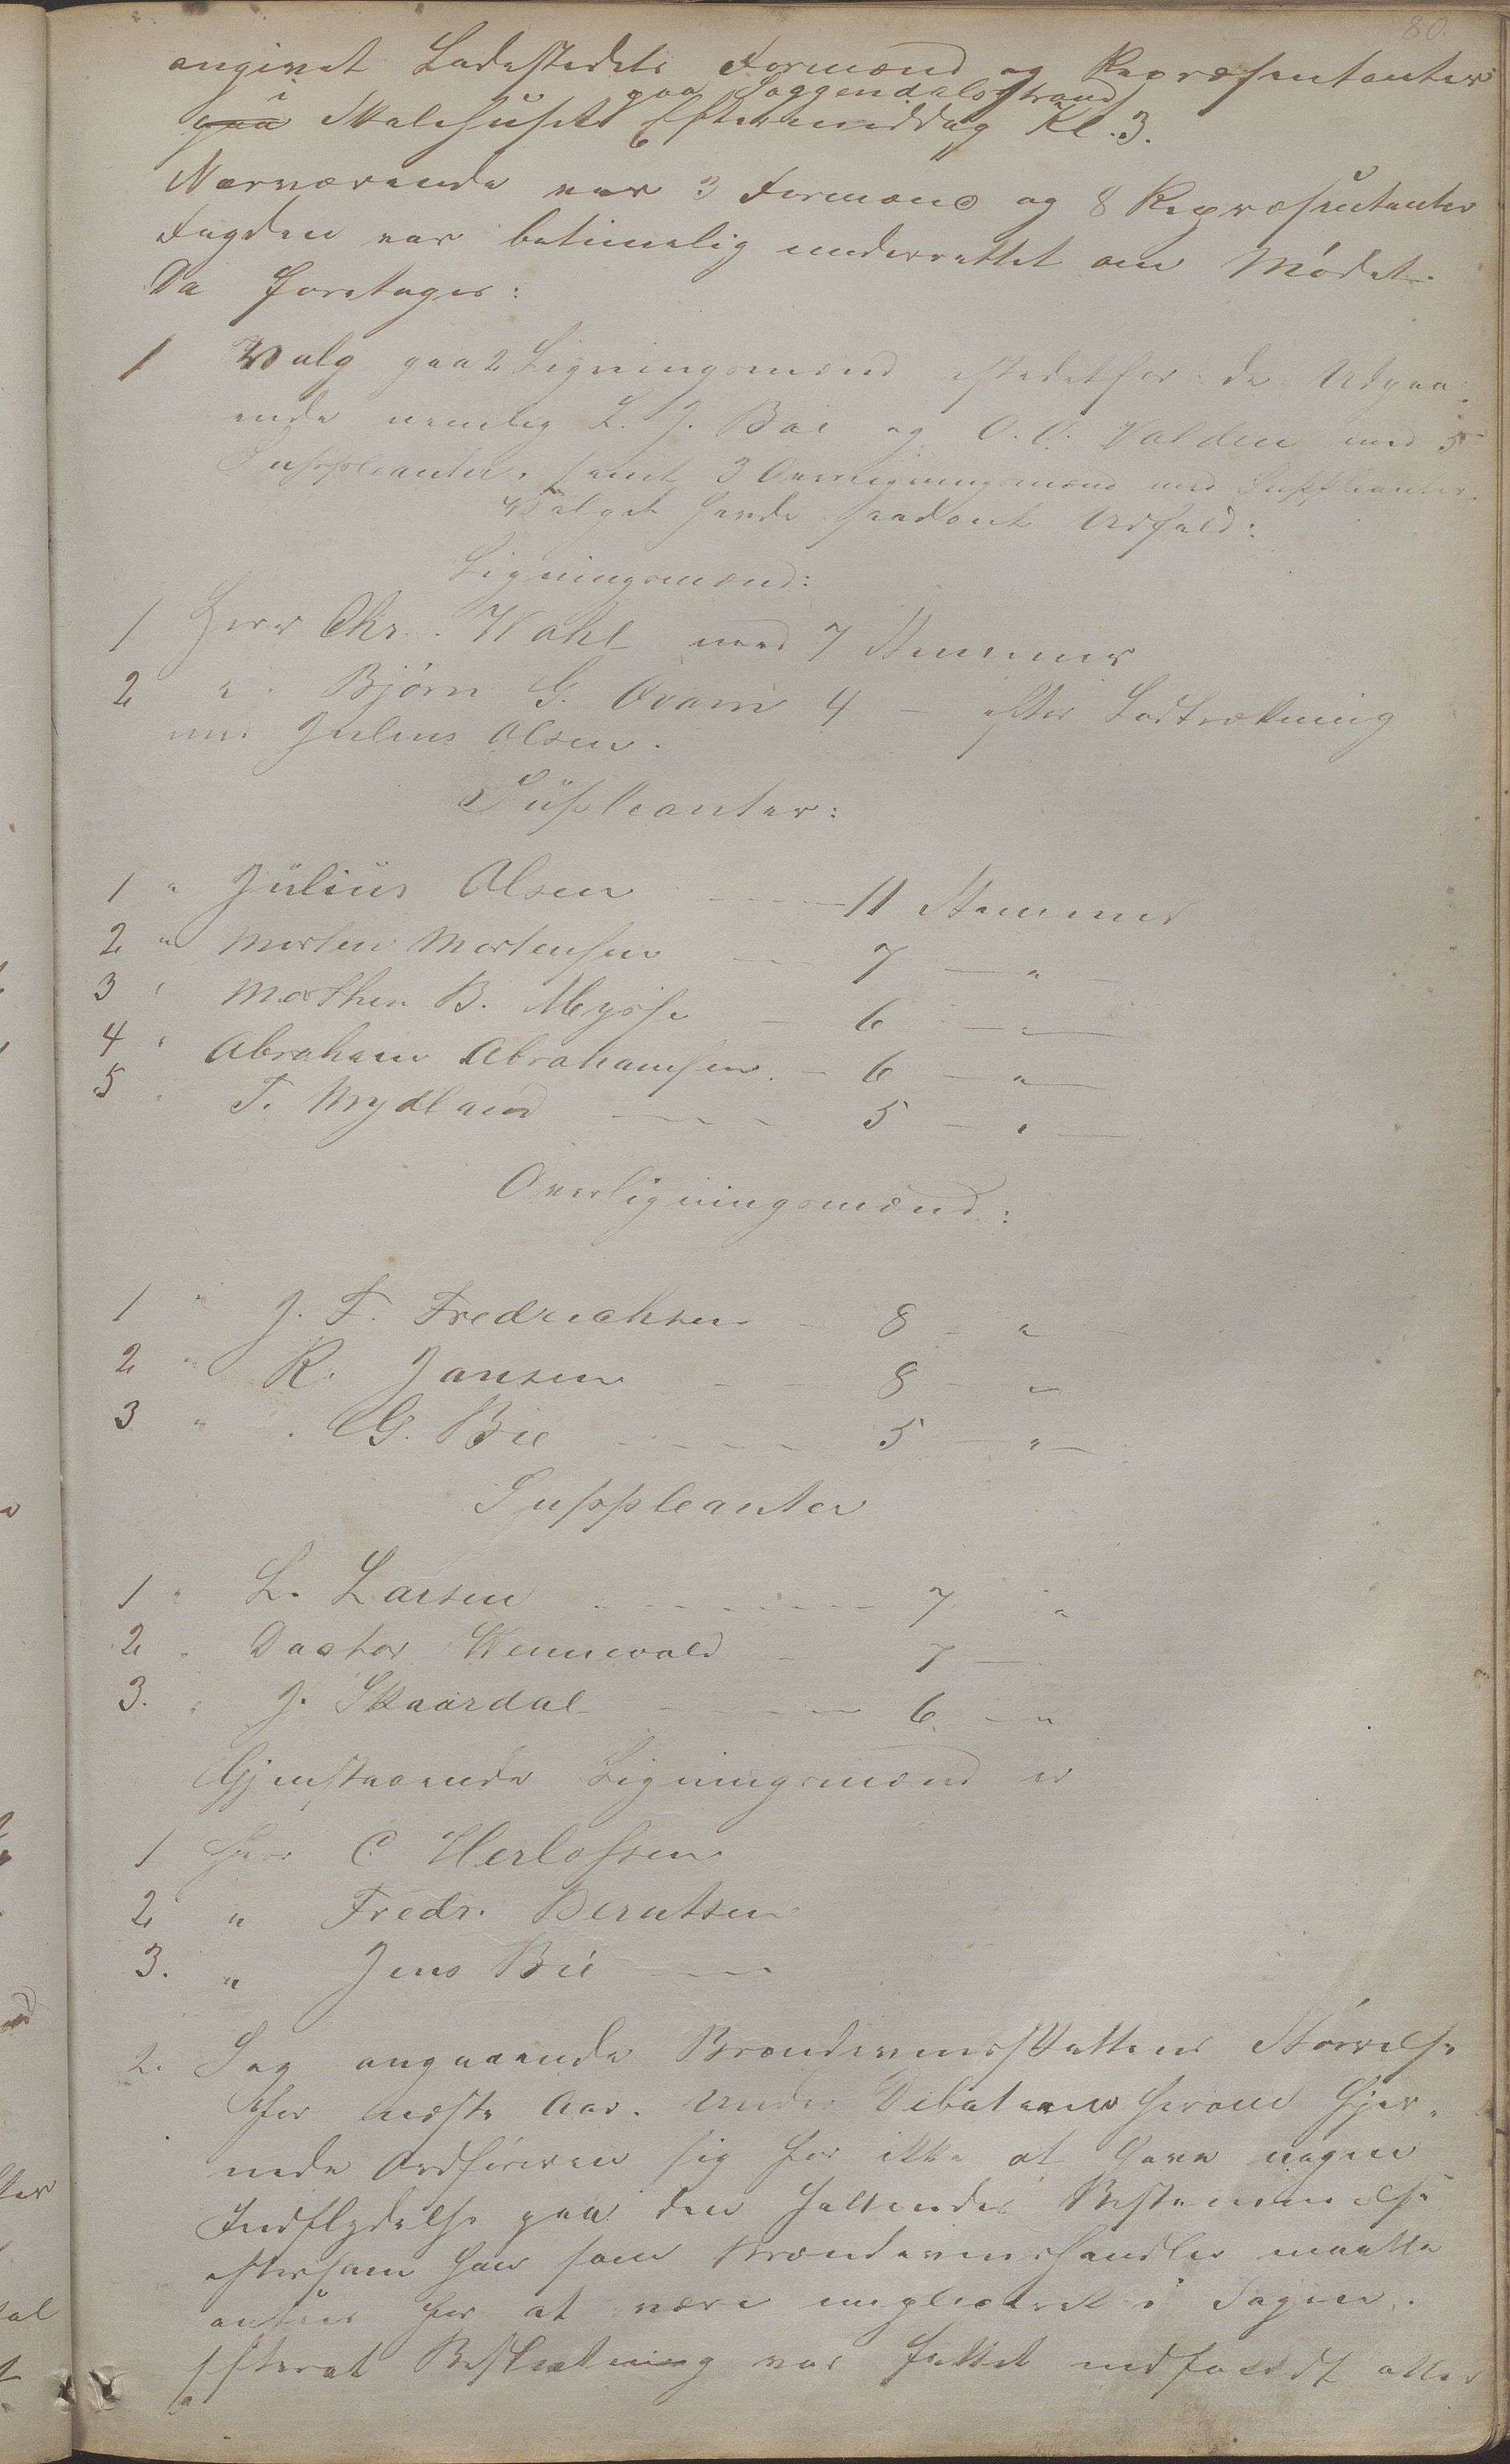 80.
angivet Ladestedets Formænd og Repræsentanter
paa Soggendalsstrand
paa i Skolehuset Eftermiddag Kl. 3.
Nærværende var 3 Formænd og 8 Repræsentanter
Fogden var betimelig underrettet om Mødet.
Da foretages:
1 Valg paa 2 Ligningsmænd istedetfor de Udgaa-
ende nemlig L. J. Bie og O. O. Valden med 5
Suppleanter, samt 3 Overligningsmænd med Suppleanter.
Valget havde saadant Udfald:
Ligningsmænd:
1 Herr Chr. Wahl med 7 Stemmer
2 " Bjørn G. Ovam 4 — efter Lodtrækning
med Julius Olsen.
Supleanter:
1 " Julius Olsen - - - - 11 Stemmer
2 " Morten Mortensen - - 7 — " —
3 " Morthen B. - 6 — " —
4 " Abraham Abrahamsen. - 6 — " —
5 " T. Mydland - - - - 5 — " —
Overligningsmænd:
1 " J. F. Fredrichsen - 8 - "
2 " R. Jansen - - 8 - "
3 " G. Bie - - - - 5 — " —
Suppleanter
1 " L. Larsen - - - - - - 7 "
2 " Doctor Wennevold - 7 —
3. " J. Skaardal - - - - 6 - "
Gjenstaaende Ligningsmænd er
1 Herr C. Herlofsen
2 " Fredr. Berntsen
3. " Jens Bie - - -
2. Sag angaaende Brændevinsskattens Størrelse
for næste Aar. Under Debaterne herom fjer-
nede Ordføreren sig for ikke at have nogen
Indflydelse paa den fattendes Bestemmelse
eftersom han som Brændevinshandler maatte
ansees for at være impliceret i Sagen.
Efterat Beslutning var fattet indfandt atter